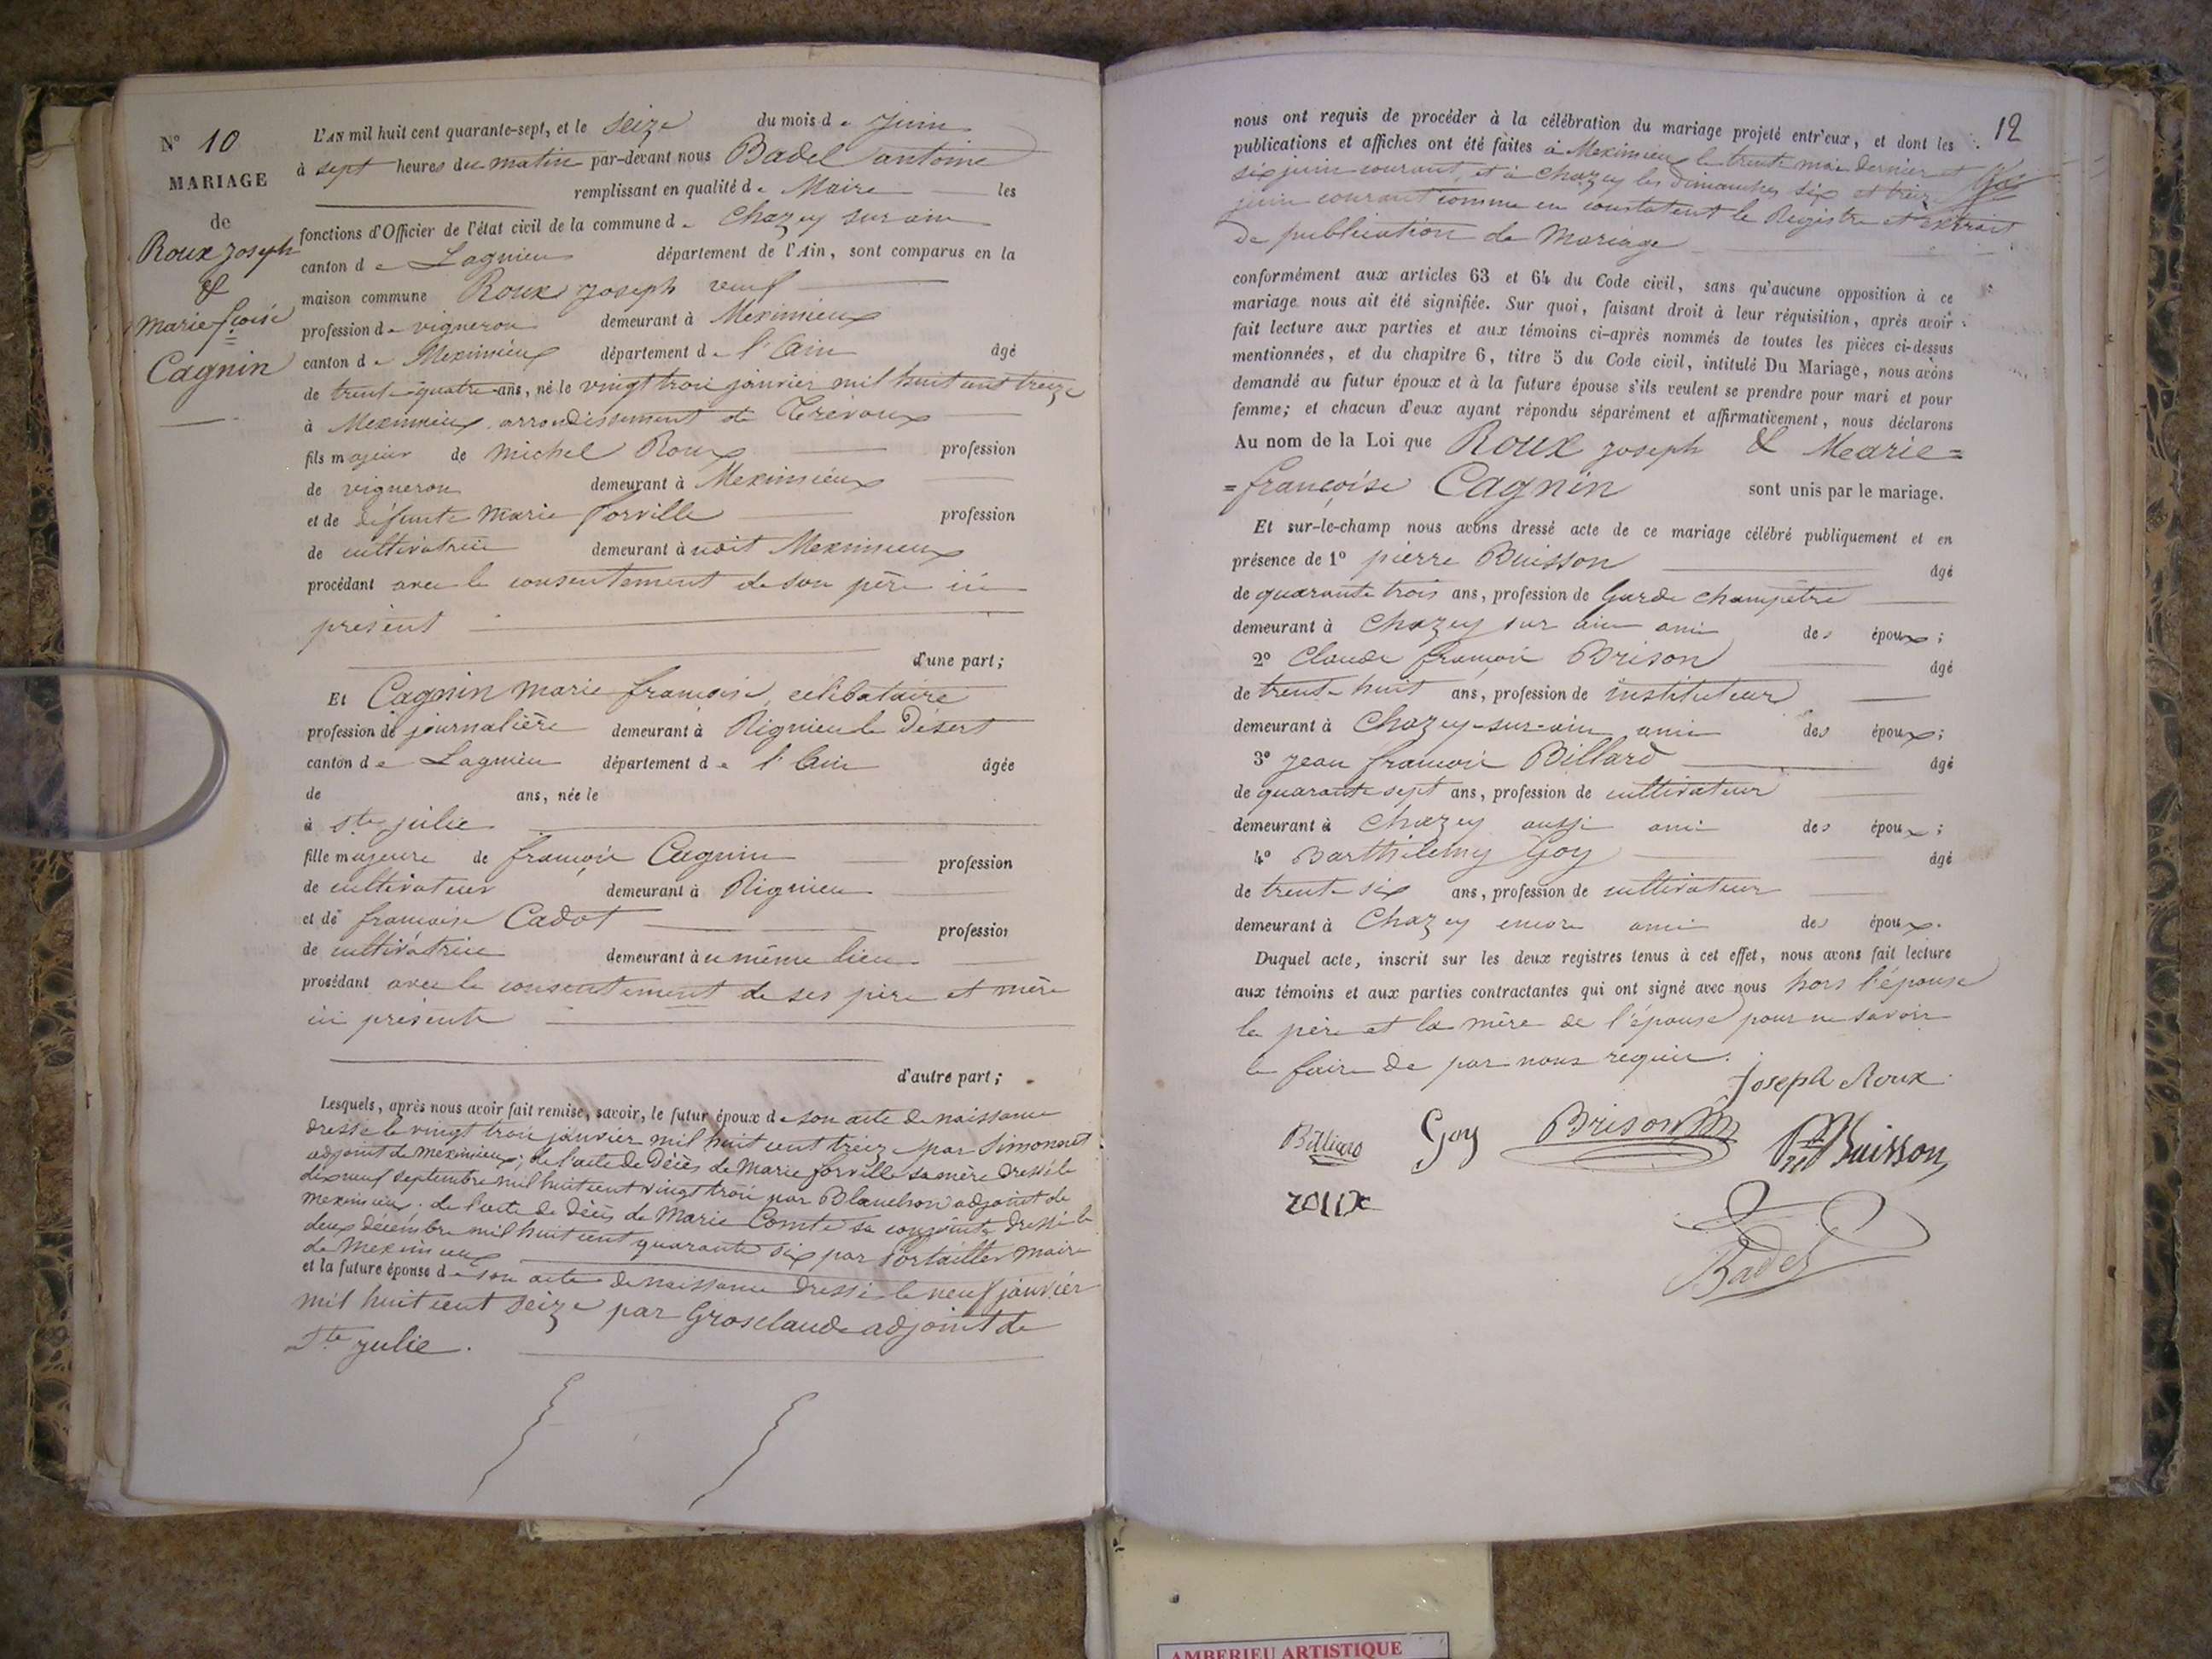 N° 10
MARIAGE
de
Roux Joseph
&
Marie fçoise
Cagnin
L'AN mil huit cent quarante-sept, et le seize du mois de juin
à sept heures du matin par-devant nous Badel antoine
remplissant en qualité de Maire les
fonctions d'Officier de l'état civil de la commune de Chazey sur ain
canton de Lagnieu département de l'Ain, sont comparus en la
maison commune Roux joseph veuf
profession de vigneron demeurant à Meximieux
canton de Meximieux département de l'Ain âgé
de trente-quatre ans, né le vingt trois janvier mil huit cent treize
à Meximieux arrondissement de Trévoux
fils majeur de michel Roux profession
de vigneron demeurant à Meximieux
et de défunte Marie forville profession
de cultivatrice demeurant à udit Meximieux
procédant avec le consentement de son père ici
présent
d'une part;
Et Cagnin marie françoise, célibataire
profession de journalière demeurant à Rignieu le Désert
canton de Lagnieu département de l'Ain âgée
de ans, née le
à ste julie
fille majeure de françois Cagnin profession
de cultivateur demeurant à Rignieu
et de françoise Cadot profession
de cultivatrice demeurant à u même lieu
procédant avec le consentement de ses père et mère
ici présents
d'autre part;
Lesquels, après nous avoir fait remise, savoir, le futur époux de son acte de naissance
dressé le vingt trois janvier mil huit cent treize par Simonnet
adjoint de meximieux; de l'acte de Décès de Marie forville sa mère dressé le
dix neuf septembre mil huit cent vingt trois par Blanchon adjoint de
meximieux; de l'acte de décès de Marie Comte sa conjointe dressé le
deux décembre mil huit cent quarante six par Portallier maire
de meximieux
et la future épouse de son acte de naissance dressé le neuf janvier
mil huit cent seize par Grosclaude adjoint de
Ste julie.
12
nous ont requis de procéder à la célébration du mariage projeté entr'eux, et dont les
publications et affiches ont été faites à Meximieux le trente mai dernier et
six juin courant, et à Chazey les dimanches six et treize
juin courant comme en constatent le Registre et extrait
de publication de Mariage
conformément aux articles 63 et 64 du Code civil, sans qu'aucune opposition à ce
mariage nous ait été signifiée. Sur quoi, faisant droit à leur réquisition, après avoir
fait lecture aux parties et aux témoins ci-après nommés de toutes les pièces ci-dessus
mentionnées, et du chapitre 6, titre 5 du Code civil, intitulé Du Mariage, nous avons
demandé au futur époux et à la future épouse s'ils veulent se prendre pour mari et pour
femme; et chacun d'eux ayant répondu séparément et affirmativement, nous déclarons
Au nom de la Loi que Roux joseph & Marie=
=françoise Cagnin sont unis par le mariage.
Et sur-le-champ nous avons dressé acte de ce mariage célébré publiquement et en
présence de 1° pierre Buisson âgé
de quarante trois ans, profession de Garde champêtre
demeurant à Chazey sur ain ami des époux;
2° Claude françois Brison âgé
de trente huit ans, profession de instituteur
demeurant à Chazey-sur-ain ami des époux;
3° jean françois Billard âgé
de quarante sept ans, profession de cultivateur
demeurant à Chazey aussi ami des époux;
4° Barthélemy Goy âgé
de trente six ans, profession de cultivateur
demeurant à Chazey encore ami des époux.
Duquel acte, inscrit sur les deux registres tenus à cet effet, nous avons fait lecture
aux témoins et aux parties contractantes qui ont signé avec nous hors l'épouse
le père et la mère de l'épouse pour ne savoir
le faire de par nous requis.
Joseph Roux
Billiard Goy Brison Buisson
roux
Badel
AMBERIEU ARTISTIQUE